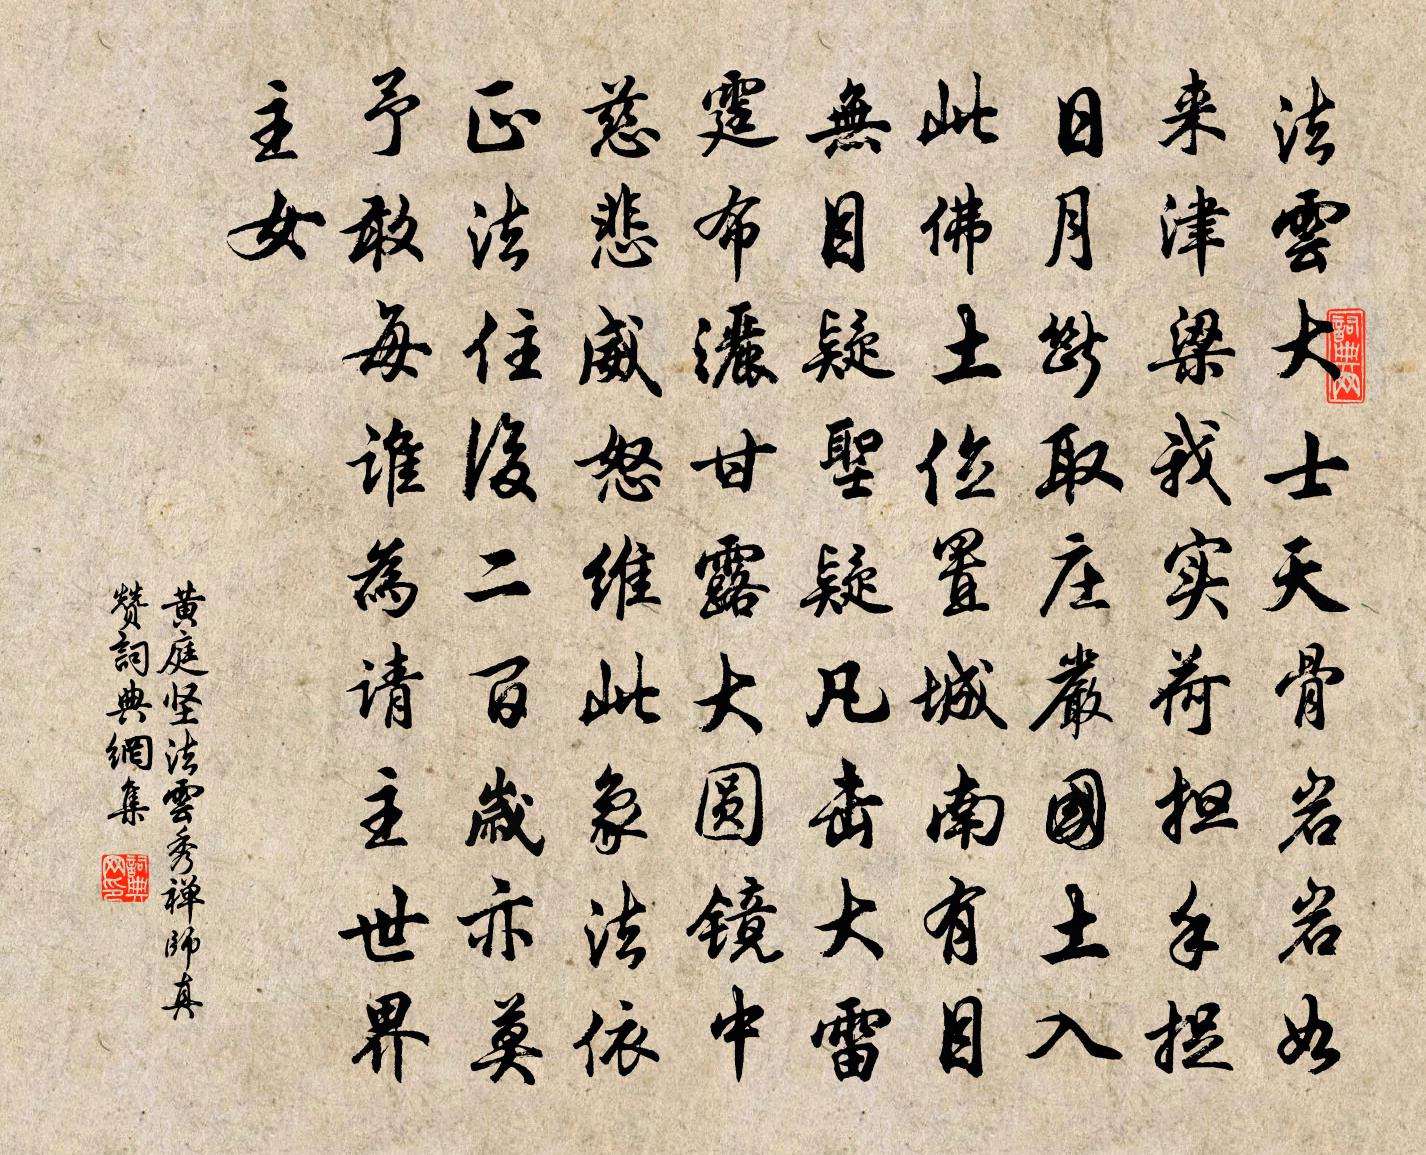 法雲大士天骨岩岩如
来津梁我实荷担手捉
日月断取庄嚴國土入
此佛土位置城南有目
無目疑聖疑凡击大雷
霆布灑甘露大圆镜中
慈悲威怒维此象法依
正法住後二百歲亦莫
予敢每谁為请主世界
主女
黄庭坚法雲秀禅師真
赞詞典網集
詞典网
詞典网印